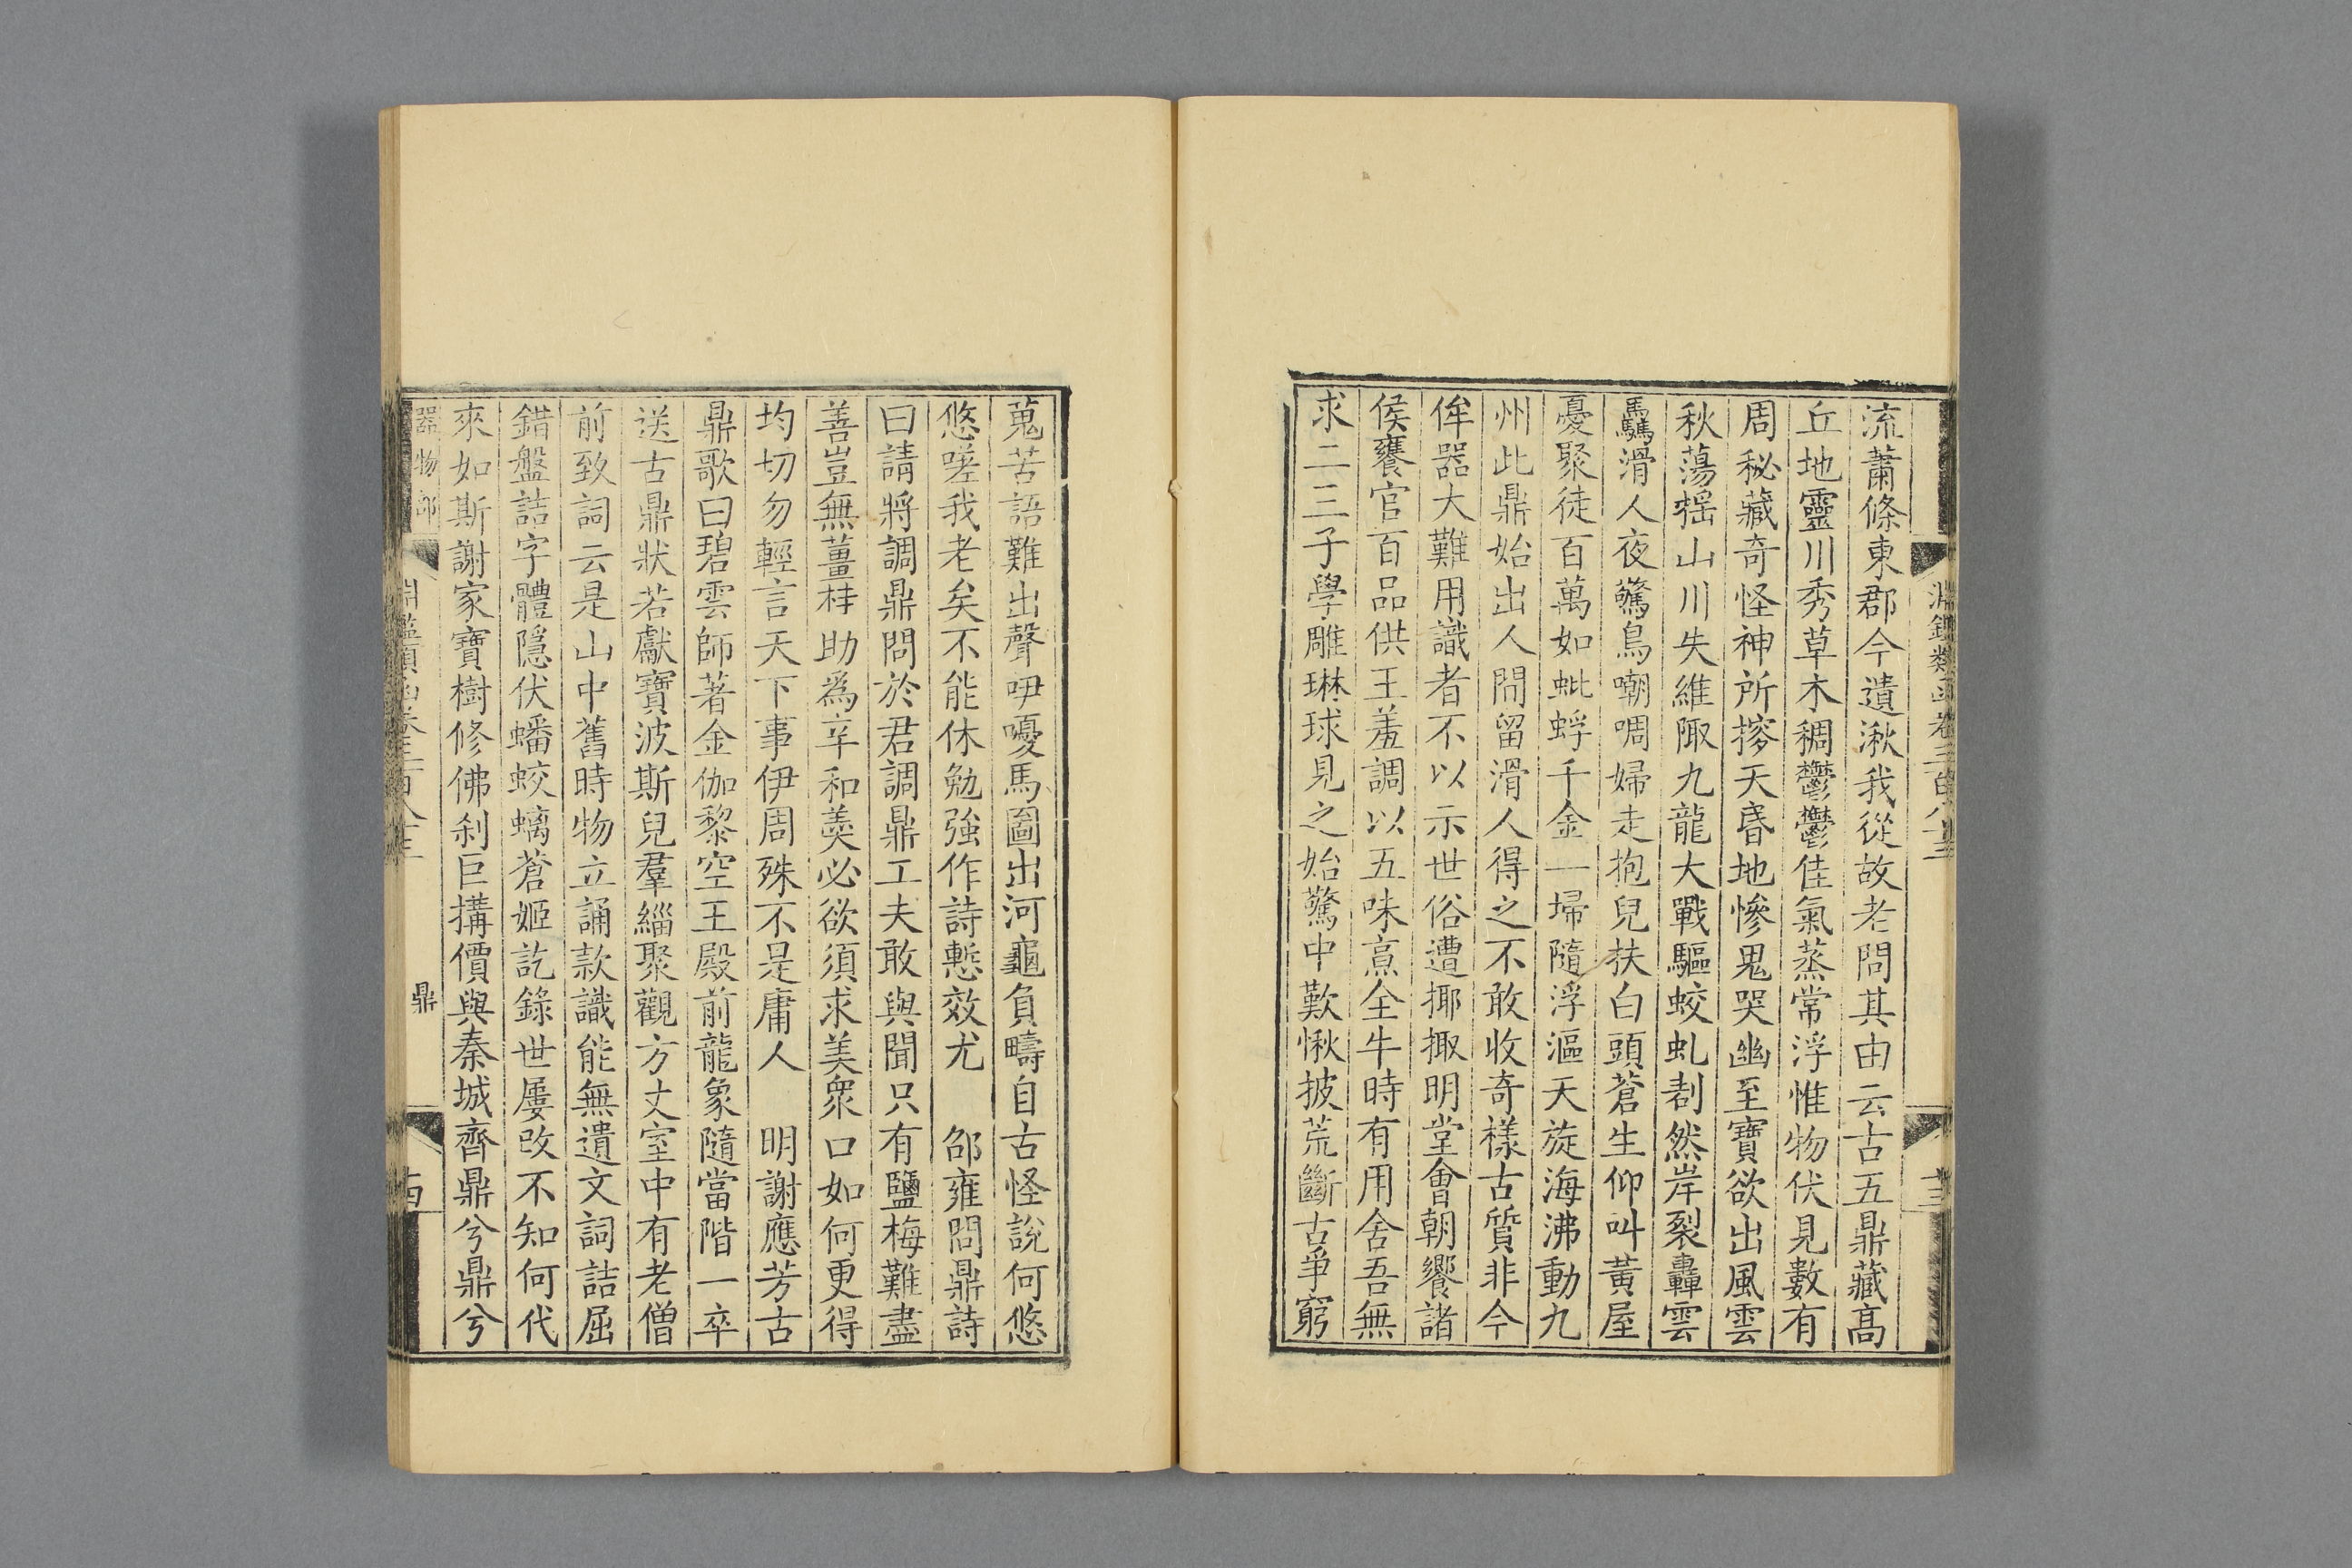 淵鑑類函卷三百八十三
十三
流蕭條東郡今遺湫我從故老問其由云古五鼎藏高
丘地靈川秀草木稠鬱鬱佳氣蒸常浮惟物伏見數有
周秘藏奇怪神所摎天昏地慘鬼哭幽至寶欲出風雲
秋蕩摇山川失維陬九龍大戰驅蛟虬剨然岸裂轟雲
驫滑人夜驚鳥嘲啁婦走抱兒扶白頭蒼生仰叫黃屋
憂聚徒百萬如蚍蜉千金一埽隨浮漚天旋海沸動九
州此鼎始出人間留滑人得之不敢收奇樣古質非今
侔器大難用識者不以示世俗遭揶揄明堂會朝饗諸
侯饔官百品供王羞調以五味烹全牛時有用舍吾無
求二三子學雕琳球見之始驚中歎愀披荒斷古爭窮
蒐苦語難出聲咿嚘馬圖出河龜負疇自古怪說何悠
悠嗟我老矣不能休勉強作詩慙效尤 邵雍問鼎詩
曰請將調鼎問於君調鼎工夫敢與聞只有鹽梅難盡
善豈無薑桂助為辛和羹必欲須求美眾口如何更得
均切勿輕言天下事伊周殊不是庸人 明謝應芳古
鼎歌曰碧雲師著金伽黎空王殿前龍象隨當階一卒
送古鼎狀若獻寶波斯兒羣緇聚觀方丈室中有老僧
前致詞云是山中舊時物立誦款識能無遺文詞詰屈
錯盤詰字體隱伏蟠蛟螭蒼姬訖錄世屢改不知何代
來如斯謝家寶樹修佛刹巨搆價與秦城齊鼎兮鼎兮
器物部
淵鑑類函卷三百八十三
鼎
十四